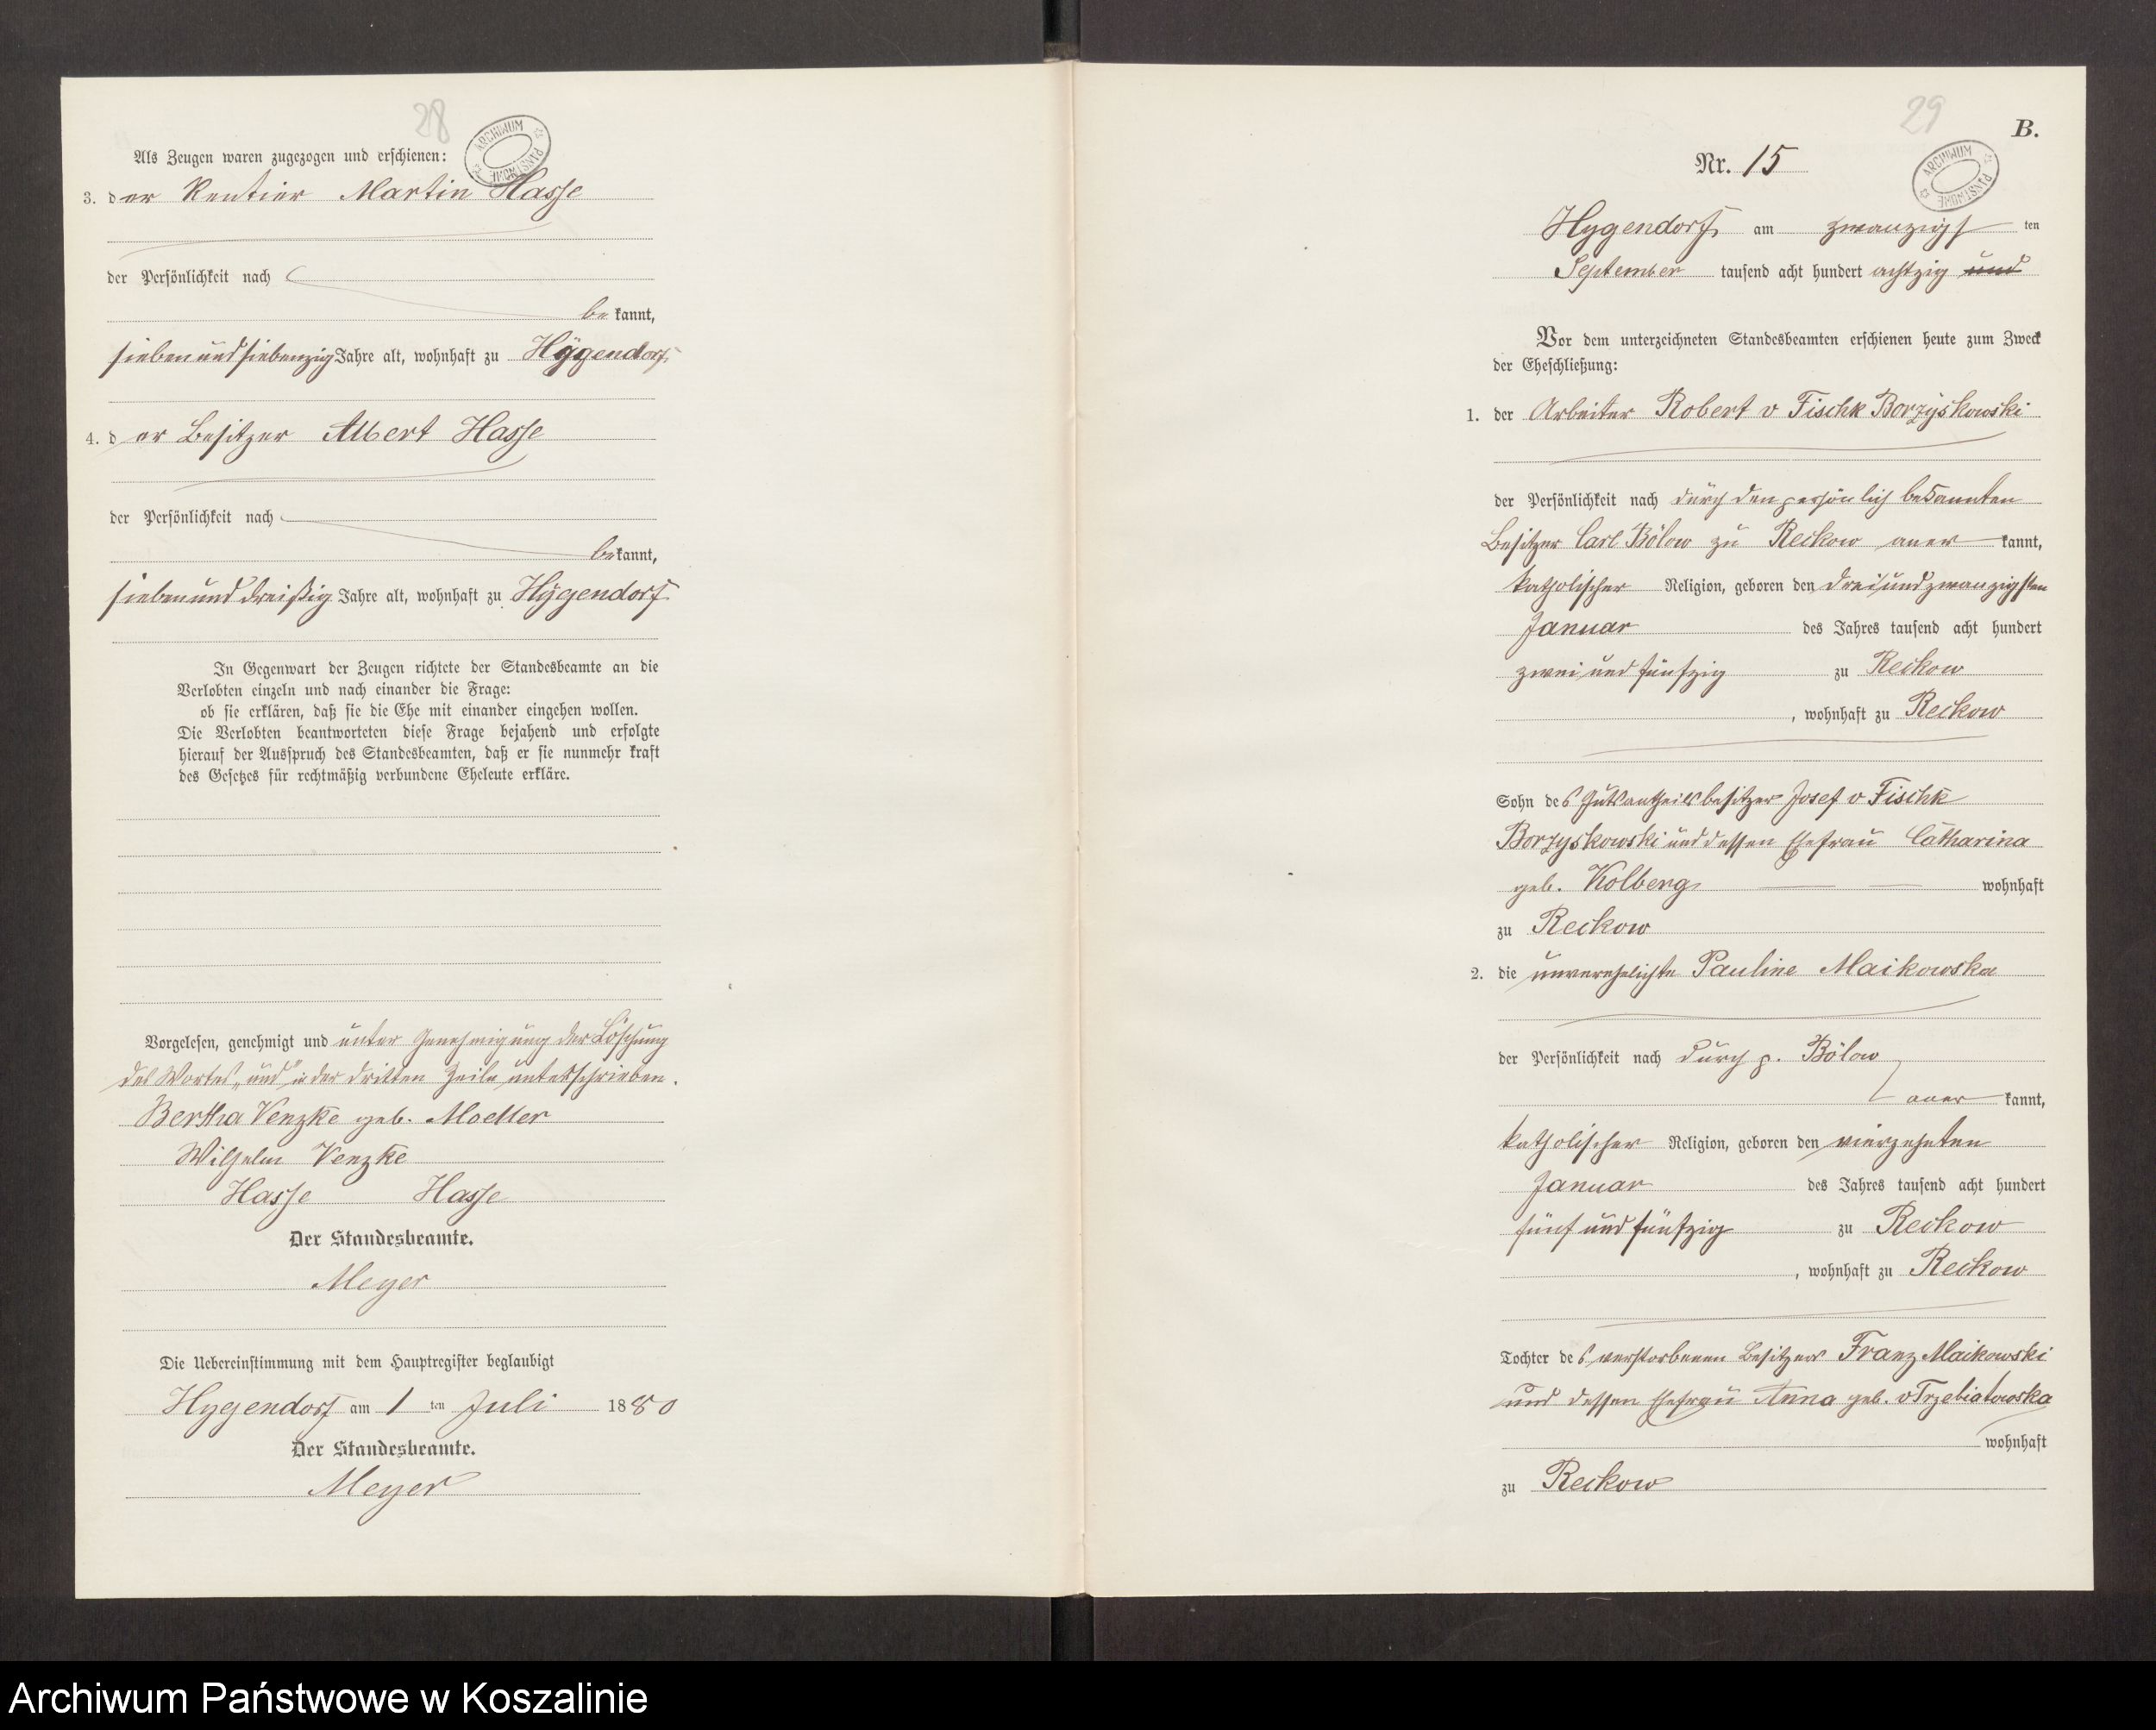 28
ARCHIWUM PAŃSTWOWE
Als Zeugen waren zugezogen und erschienen:
3. der Rentier Martin Hasse
der Persönlichkeit nach
bekannt,
siebenundsiebenzig Jahre alt, wohnhaft zu Hygendorf
4. der Besitzer Albert Hasse
der Persönlichkeit nach
bekannt,
siebenunddreißig Jahre alt, wohnhaft zu Hygendorf
In Gegenwart der Zeugen richtete der Standesbeamte an die
Verlobten einzeln und nach einander die Frage:
ob sie erklären, daß sie die Ehe mit einander eingehen wollen.
Die Verlobten beantworteten diese Frage bejahend und erfolgte
hierauf der Ausspruch des Standesbeamten, daß er sie nunmehr kraft
des Gesetzes für rechtmäßig verbundene Eheleute erkläre.
Vorgelesen, genehmigt und unter Genehmigung der Löschung
des Wortes „und" in der dritten Zeile unterschrieben.
Bertha Venzke geb. Moeller
Wilhelm Venzke
Hasse Hasse
Der Standesbeamte.
Meyer
Die Uebereinstimmung mit dem Hauptregister beglaubigt
Hygendorf am 1 ten Juli 1880
Der Standesbeamte.
Meyer
29
B.
ARCHIWUM PAŃSTWOWE
Nr. 15
Hygendorf am zwanzigsten
September tausend acht hundert achtzig und
Vor dem unterzeichneten Standesbeamten erschienen heute zum Zweck
der Eheschließung:
1. der Arbeiter Robert v Fischk Borzyskowski
der Persönlichkeit nach durch den persönlich bekannten
Besitzer Carl Bölow zu Reckow anerkannt,
katholischer Religion, geboren den dreiundzwanzigsten
Januar des Jahres tausend acht hundert
zwei und fünfzig zu Reckow
, wohnhaft zu Reckow
Sohn des Gutsantheilsbesitzer Josef v Fischk
Borzyskowski und dessen Ehefrau Catharina
geb. Kolberg wohnhaft
zu Reckow
2. die unverehelichte Pauline Maikowska
der Persönlichkeit nach durch p. Bölow
anerkannt,
katholischer Religion, geboren den vierzehnten
Januar des Jahres tausend acht hundert
fünf und fünfzig zu Reckow
, wohnhaft zu Reckow
Tochter des verstorbenen Besitzer Franz Maikowski
und dessen Ehefrau Anna geb. v Trzebiatowska
wohnhaft
zu Reckow
Archiwum Państwowe w Koszalinie